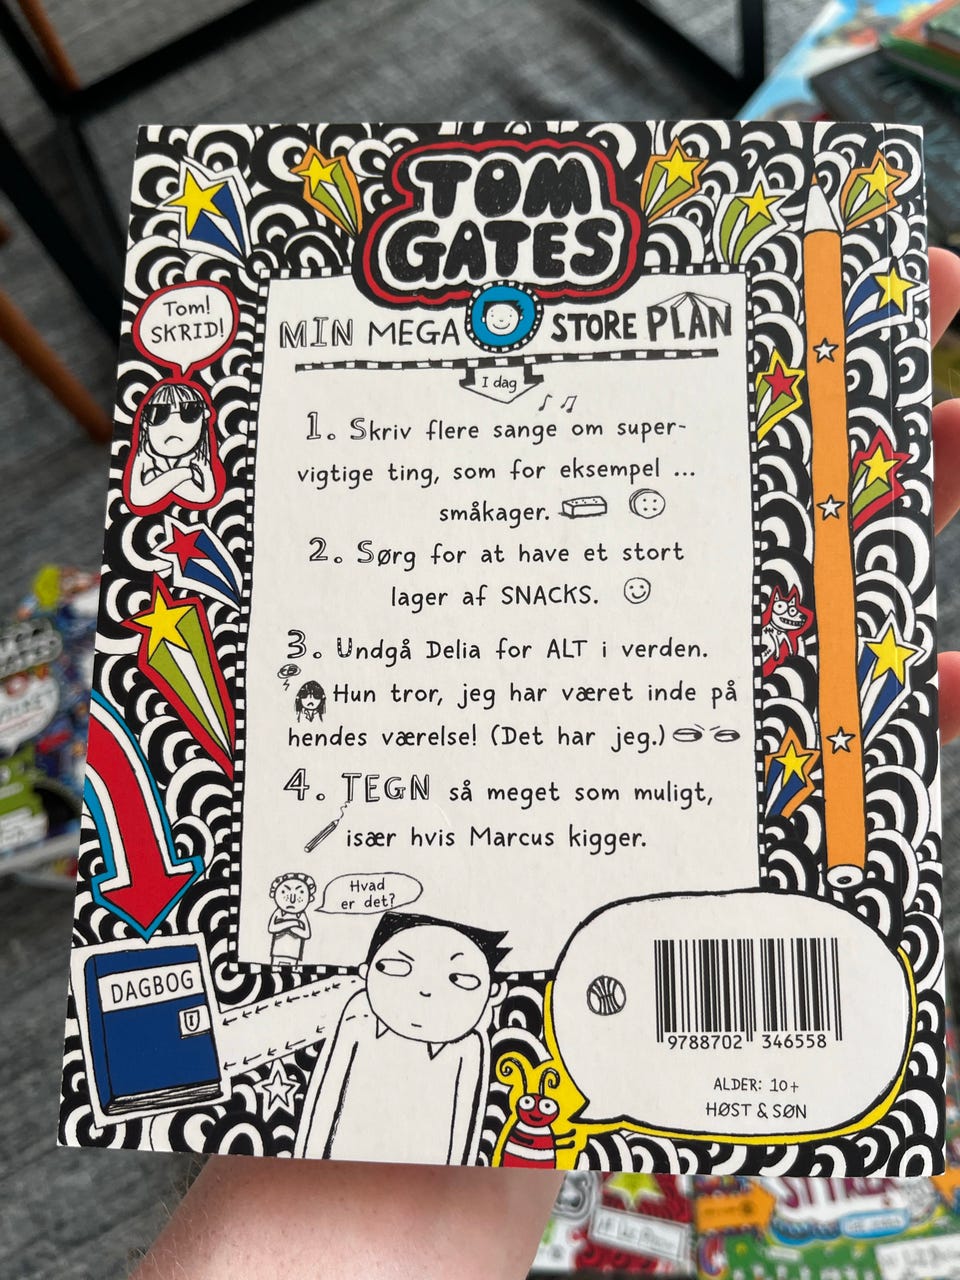 TOM
GATES
MIN MEGA STORE PLAN
I dag
Tom!
SKRID!
1. Skriv flere sange om super-
vigtige ting, som for eksempel ...
småkager.
2. Sørg for at have et stort
lager af SNACKS.
3. Undgå Delia for ALT i verden.
Hun tror, jeg har været inde på
hendes værelse! (Det har jeg.)
4. TEGN så meget som muligt,
især hvis Marcus kigger.
Hvad
er det?
DAGBOG
9788702 346558
ALDER: 10+
HØST & SØN